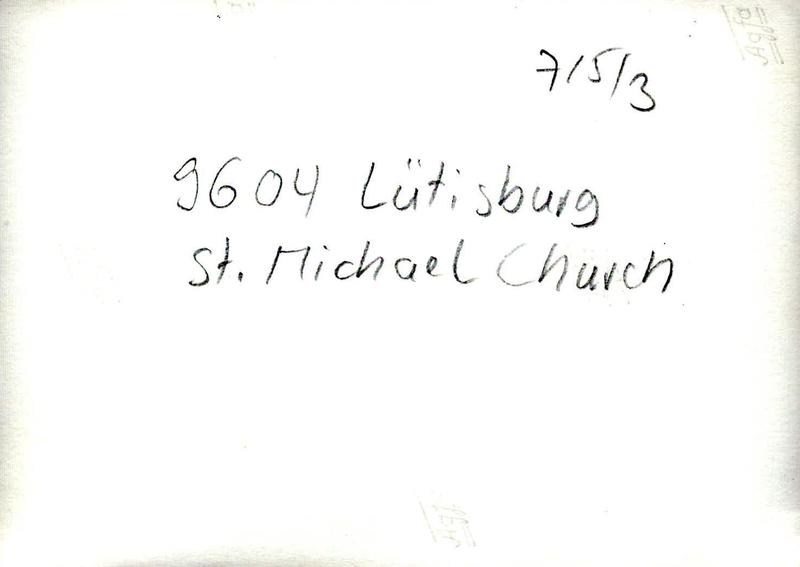 Agfa
7/5/3
9604 Lütisburg
St. Michael Church